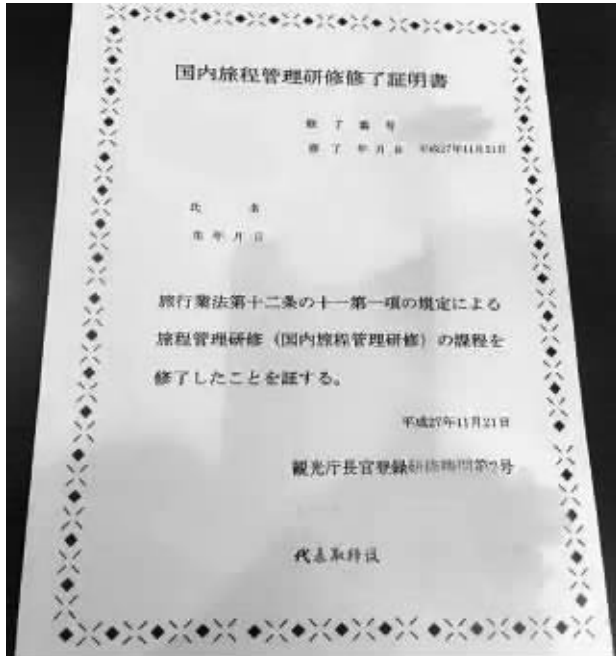 国内旅程管理研修修了証明書
修了番号
修了年月日 平成27年11月21日
氏名
生年月日
旅行業法第十二条の十一第一項の規定による
旅程管理研修(国内旅程管理研修)の課程を
修了したことを証する。
平成27年11月21日
観光庁長官登録研修機関第 号
代表取締役